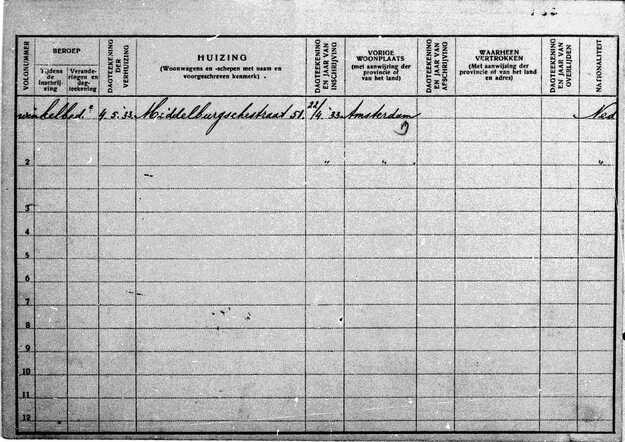 VOLGNUMMER
BEROEP
Tijdens de inschrijving
Veranderingen en dagteekening
DAGTEEKENING DER VERHUIZING
HUIZING
(Woonwagens en -schepen met naam en voorgeschreven kenmerk).
DAGTEEKENING EN JAAR VAN INSCHRIJVING
VORIGE WOONPLAATS
(met aanwijzing der provincie of van het land)
DAGTEEKENING EN JAAR VAN AFSCHRIJVING
WAARHEEN VERTROKKEN
(Met aanwijzing der provincie of van het land en adres)
DAGTEEKENING EN JAAR VAN OVERLIJDEN
NATIONALITEIT
winkelbede 4.5.'33. Middelburgschestraat 51. 22/4 '33 Amsterdam Ned
2 " " "
3
4
5
6
7
8
9
10
11
12